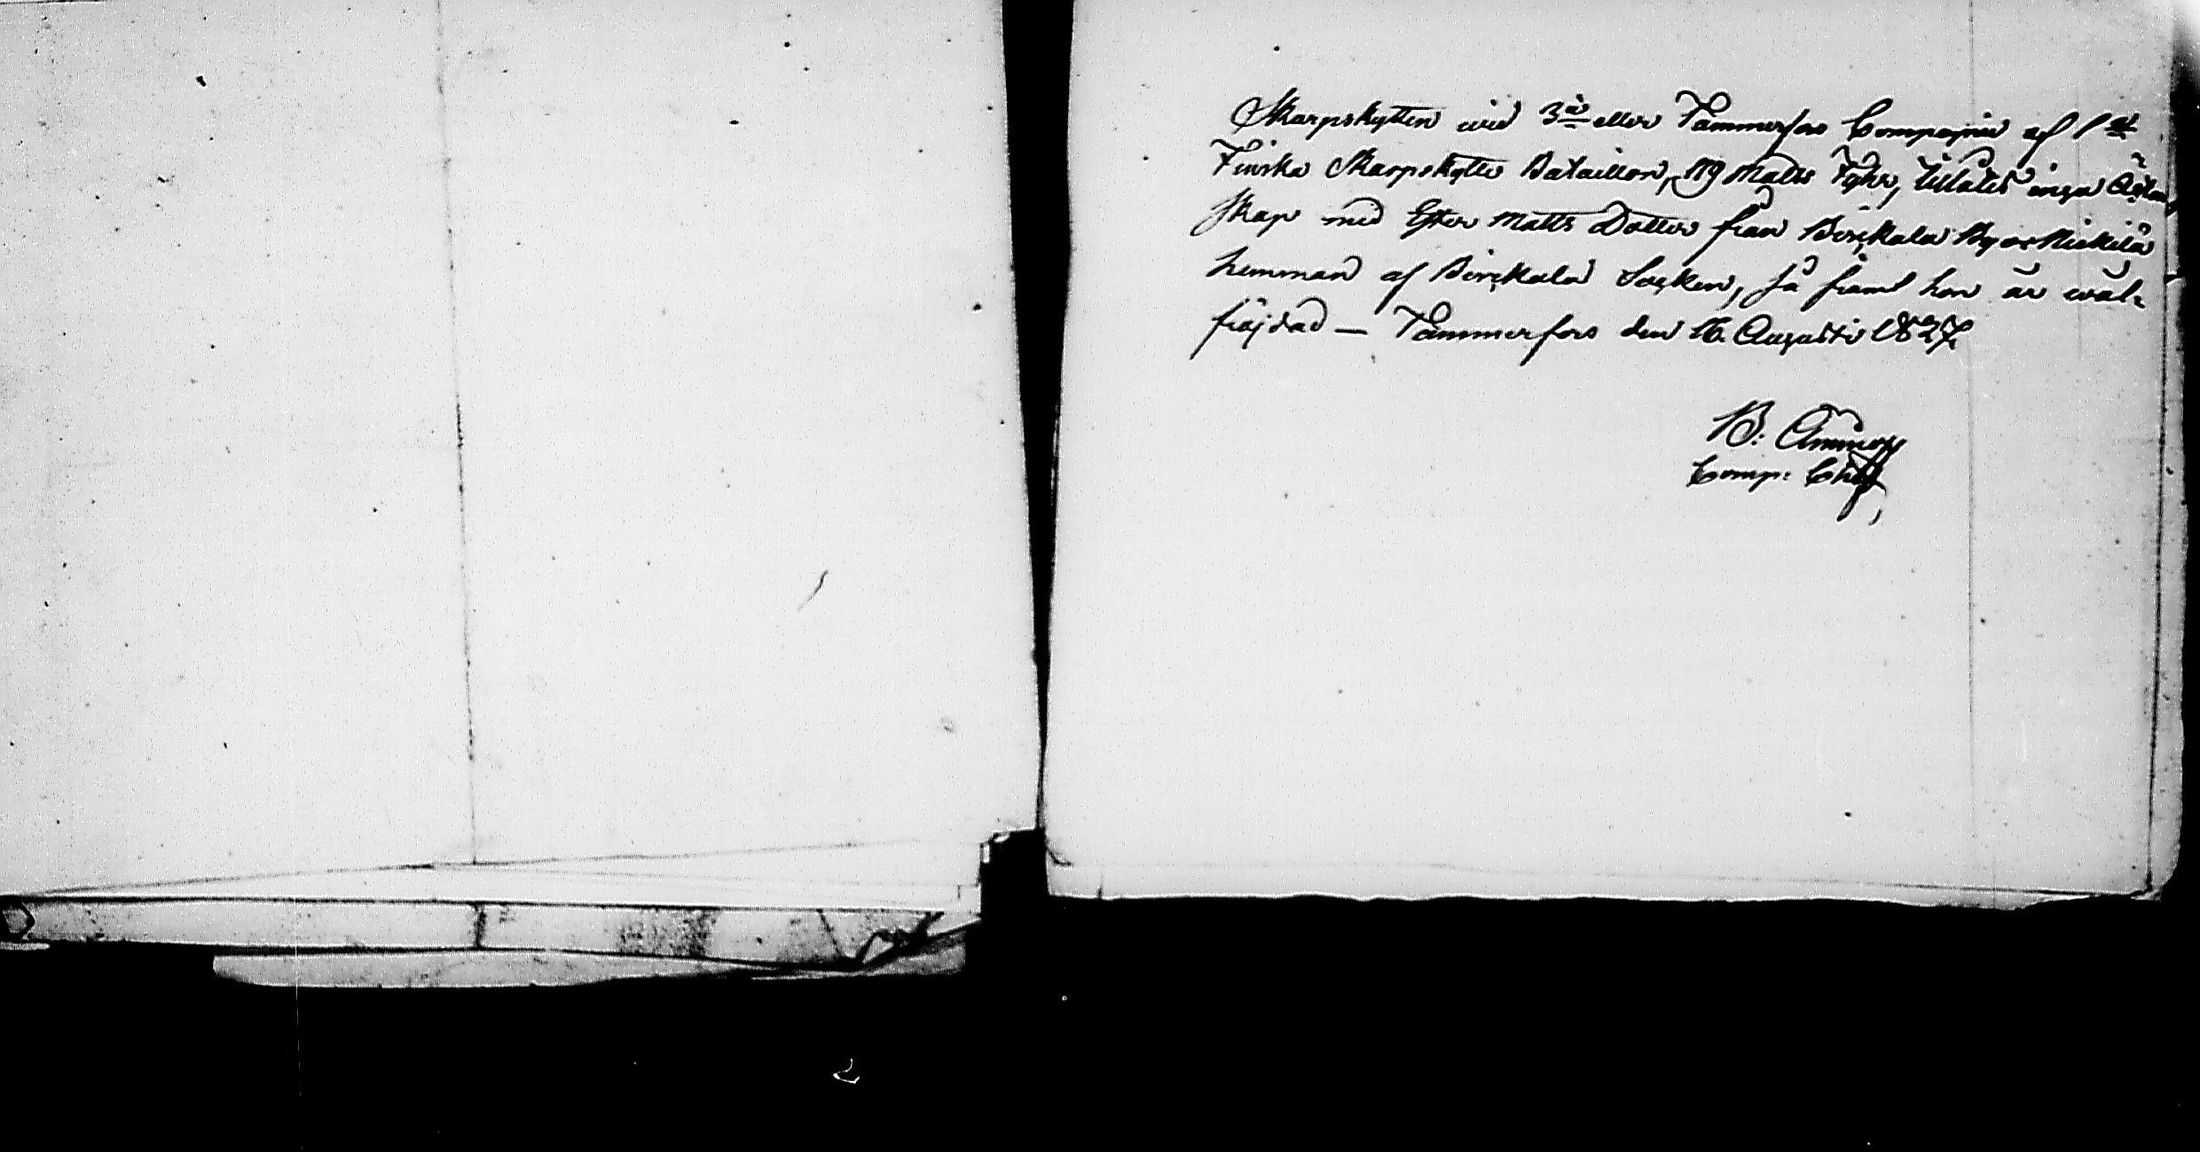 Skarpskytten wid 3:a eller Tammerfors Compagnie af 1:sta
Finska Skarpskytte Bataillon, Matts Fyhr, tillåtes ingå Äkten-
skap med Ester Matts Dotter från Birckala By och
hemman af Birckala Socken, så framt hon är wäl-
fräjdad — Tammerfors den 16. Augusti 1827.
B:
Comp: Cheff,